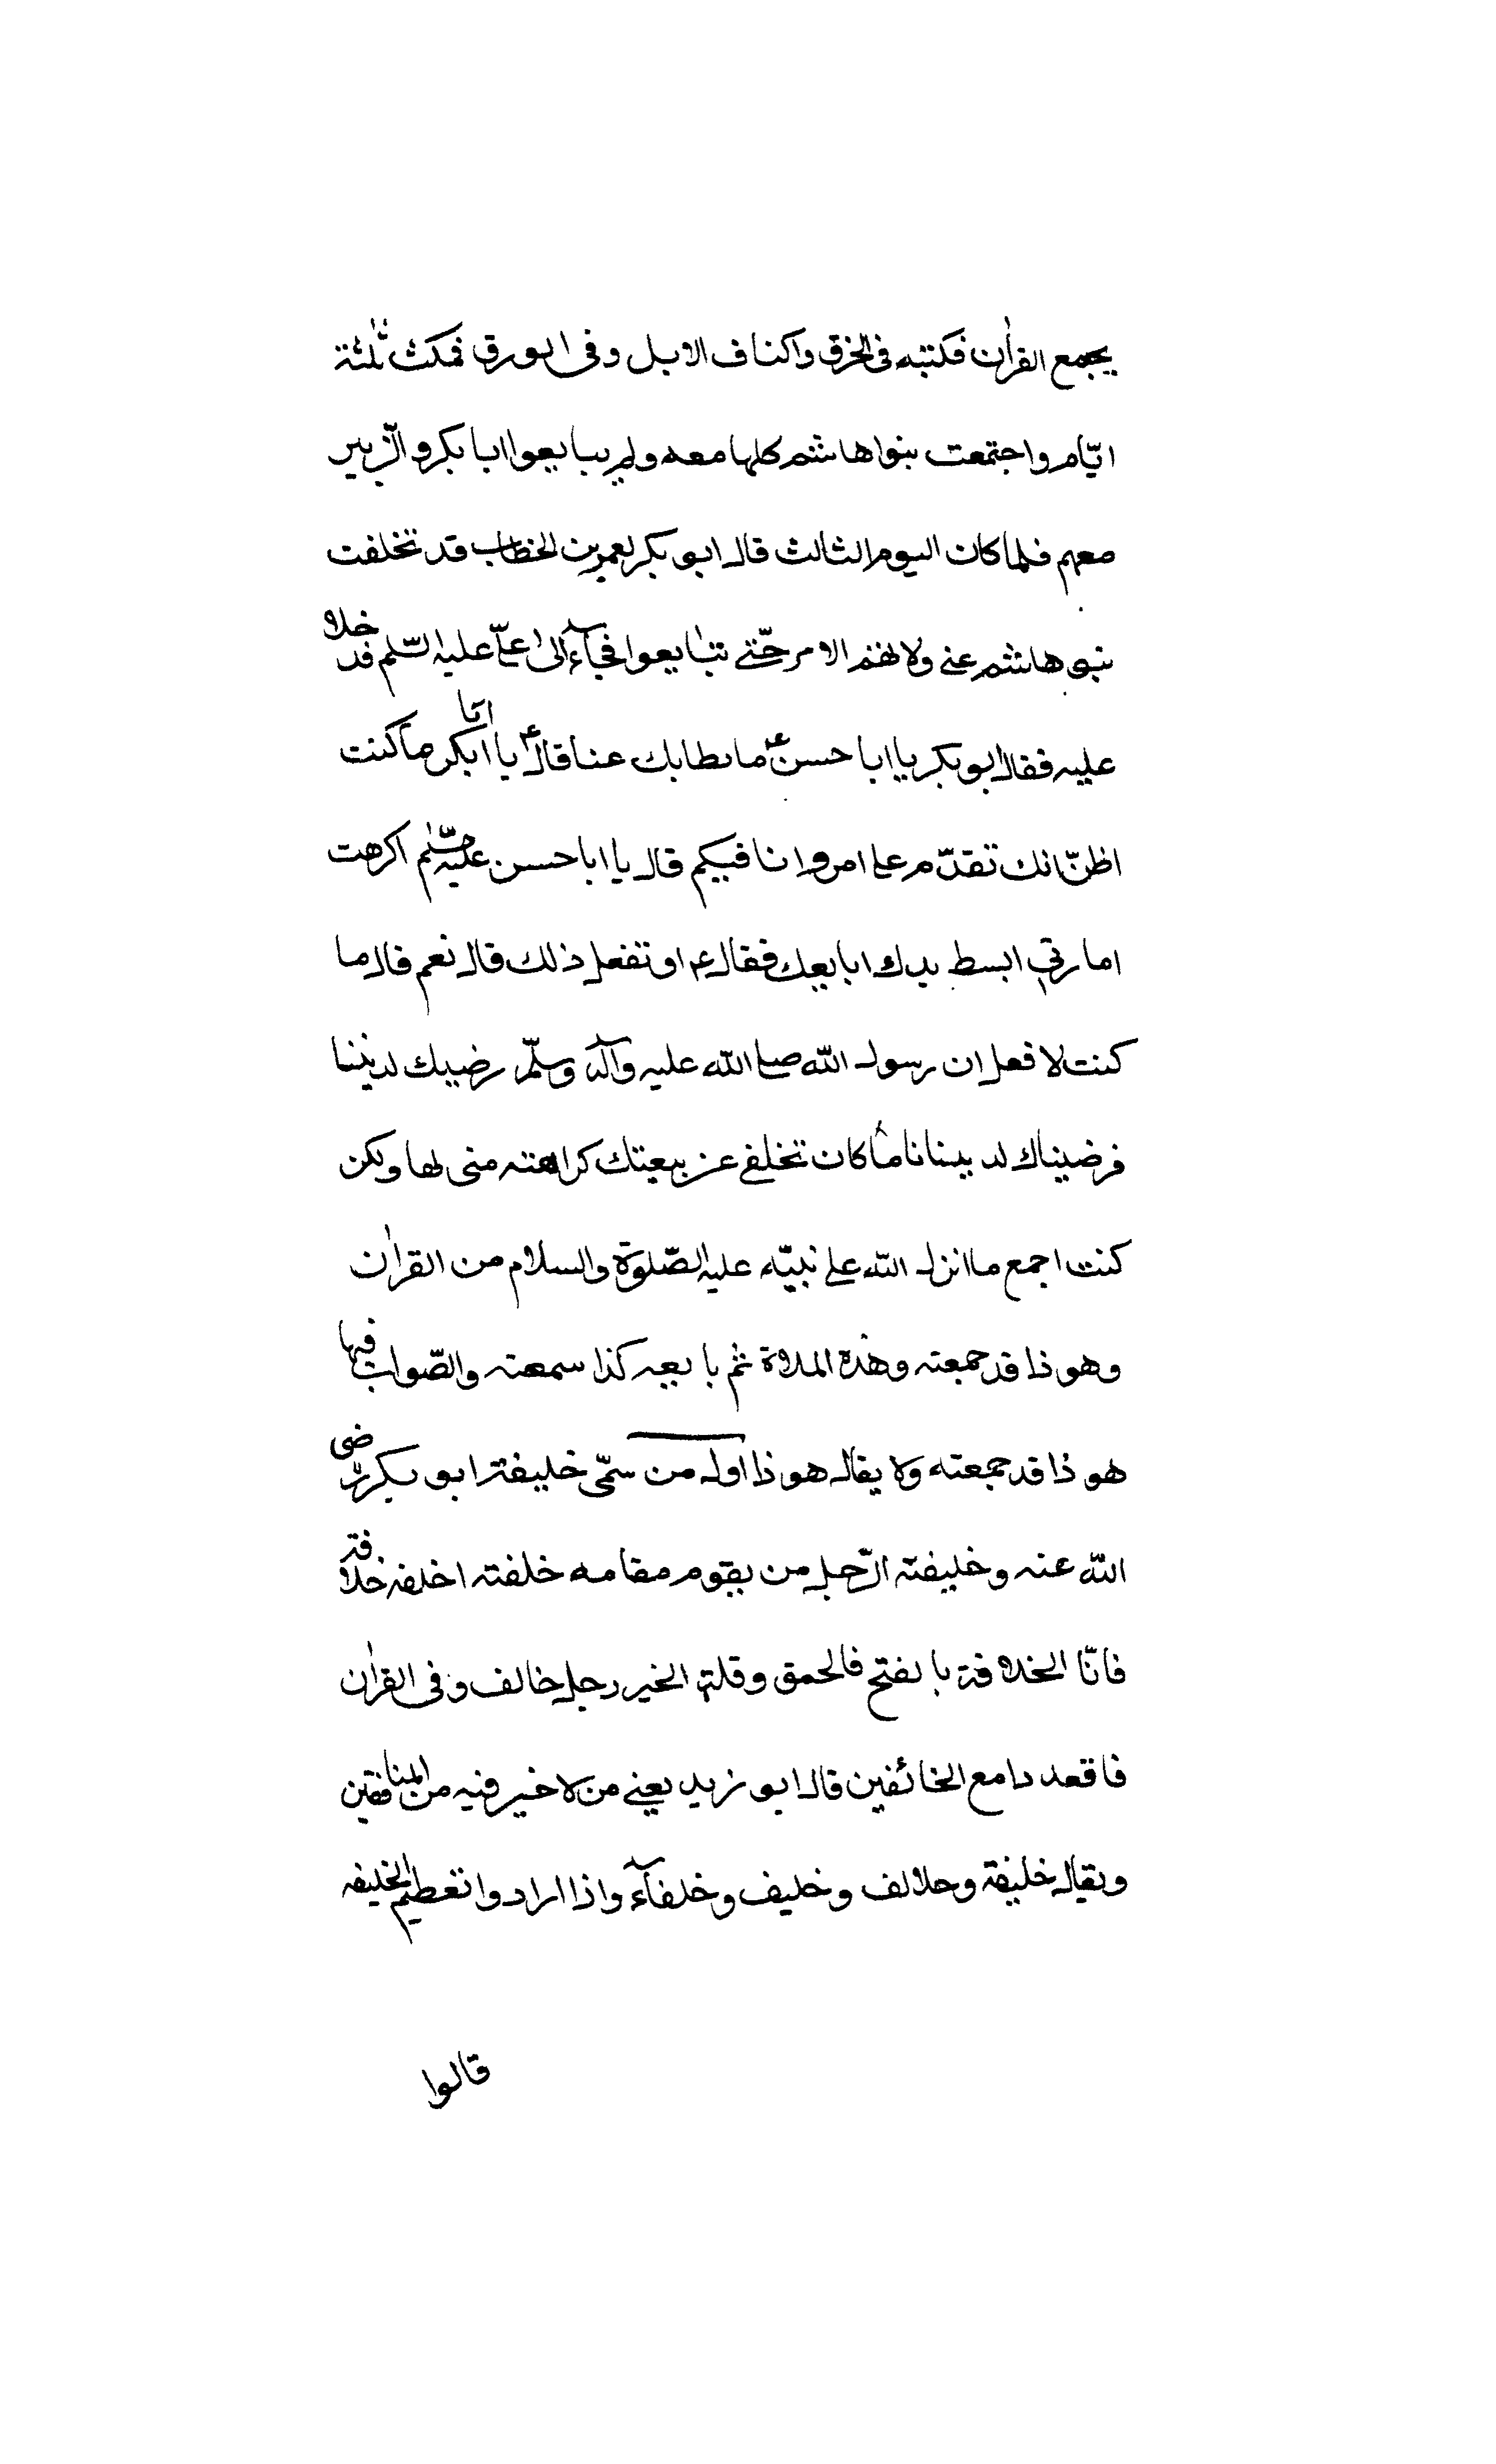 يجمع القرٰان فكتبه فى الخرق واكتاف الابل وفى الورق فمكث ثلٰثة
ايّام واجتمعت بنوا هاشم كلها معه ولم يبايعوا ابا بكر والزّبير
معهم فلما كان اليوم الثالث قال ابو بكر لعمر بن الخطاب قد تخلفت
بنو هاشم عنى ولا الامر حتّى يتبايعوا فجآء الى علىّ عليه السّلم فدخلا
عليه فقال ابو بكر يا ابا حسن ع ما بطا بك عنا قال ع يا ابا بكر ما كنت
اظنّ انك تقدّم على امر وانا فيكم قال يا ابا حسن عليه السّلم اكرهت
امارتى ابسط يدك ابايعك فقال ع او تفعل ذلك قال نعم قال ما
كنت لافعل ان رسول اللّه صلى اللّه عليه وآله وسلّم رضيك لديننا
فرضيناك لديننا ما كان تخلفى عن بيعتك كراهته منى لها ولكن
كنت اجمع ما انزل اللّه على نبيّه عليه الصّلوة والسلام من القرٰان
وهو ذا قد جمعته وهذه الملاة ثم بايعه كذا سمعته والصّواب فيها
هو ذا قد جمعته ولا يقال هو ذا اول من سمّى خليفة ابو بكر رضى
اللّه عنه وخليفة الرّجل من يقوم مقامه خلفته اخلفه خلافة
فانّا الخلافة بالفتح فالحمق وقلة الخير رجل خالف وفى القرٰان
فاقعدوا مع الخائفين قال ابو زيد يعنى من لا خير فيه من المنافقين
ويقال خليفة وخلائف وخليف وخلفآء واذا ارادوا تعظيم الخليفه
قالوا